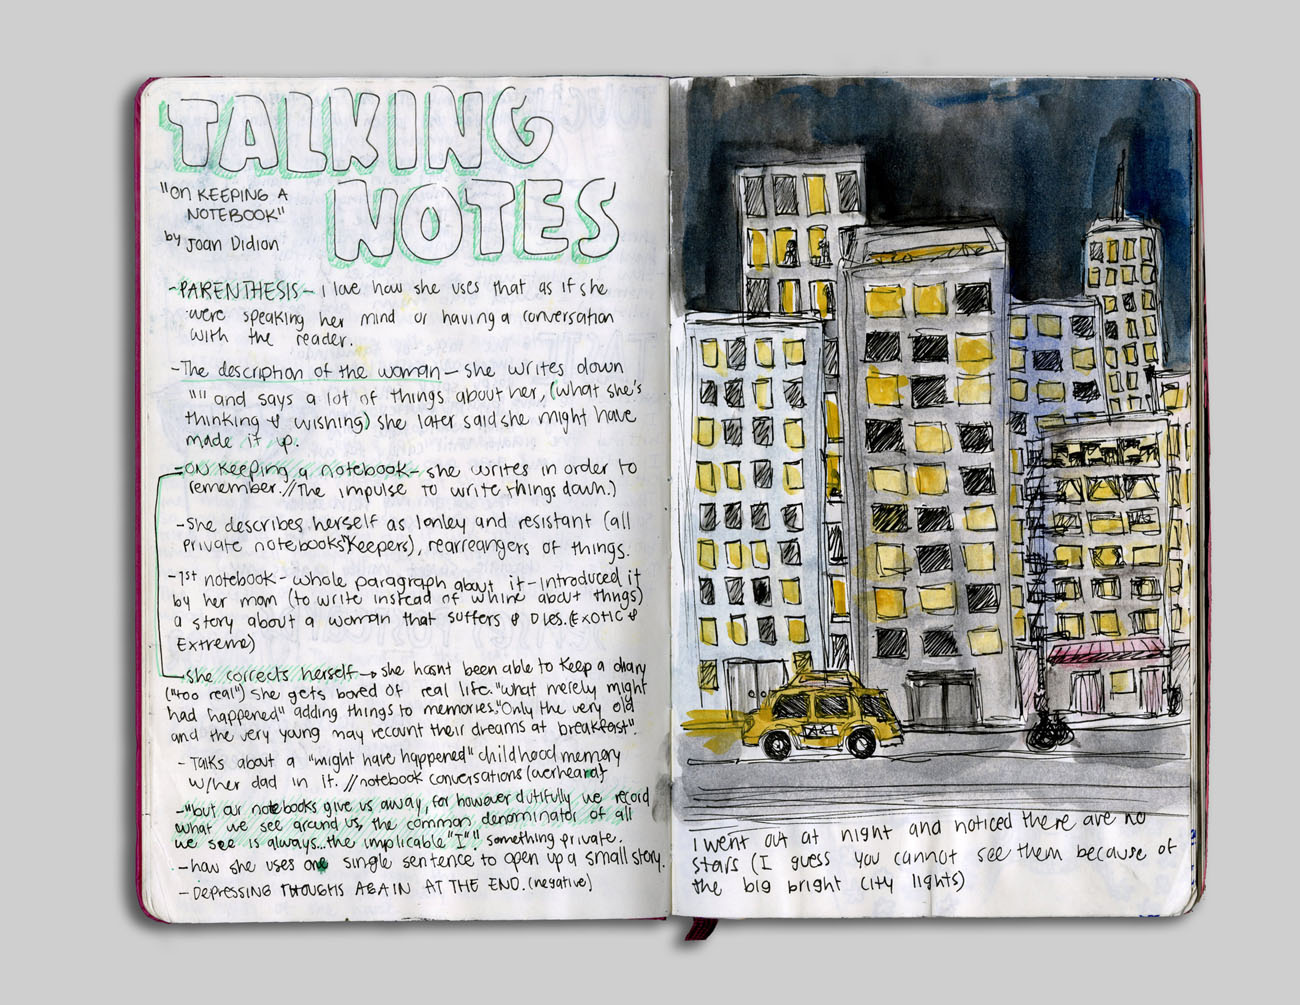 TALKING
NOTES
"ON KEEPING A
NOTEBOOK"
by Joan Didion
-PARENTHESIS- i love how she uses that as if she
were speaking her mind or having a conversation
with the reader.
-The description of the woman- she writes down
"" and says a lot of things about her, (what she's
thinking & wishing) she later said she might have
made it up.
-on keeping a notebook- she writes in order to
remember.//The impulse to write things down.)
-she describes herself as lonley and resistant (all
private notebooks Keepers), rearreangers of things.
-1st notebook- whole paragraph about it-introduced it
by her mom (to write instead of whine about things)
a story about a woman that suffers & DIES.(Exotic &
Extreme)
she corrects herself → she hasnt been able to keep a diary
("too real") she gets bored of real life."what merely might
had happened" adding things to memories."Only the very old
and the very young may recount their dreams at breakfast".
- Talks about a "might have happened" childhood memory
w/her dad in it. //notebook conversations (overheard)
-"but our notebooks give us away, for however dutifully we record
what we see around us, the common denominator of all
we see is always...the implicable "I"" something private.
-how she uses one single sentence to open up a small story.
-DEPRESSING THOUGHS AGAIN AT THE END.(negative)
TAXI
I went out at night and noticed there are no
stars (I guess you cannot see them because of
the big bright city lights)